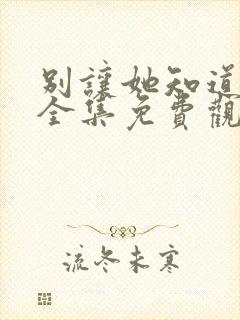 別讓她知道
全集免費觀
流冬未寒